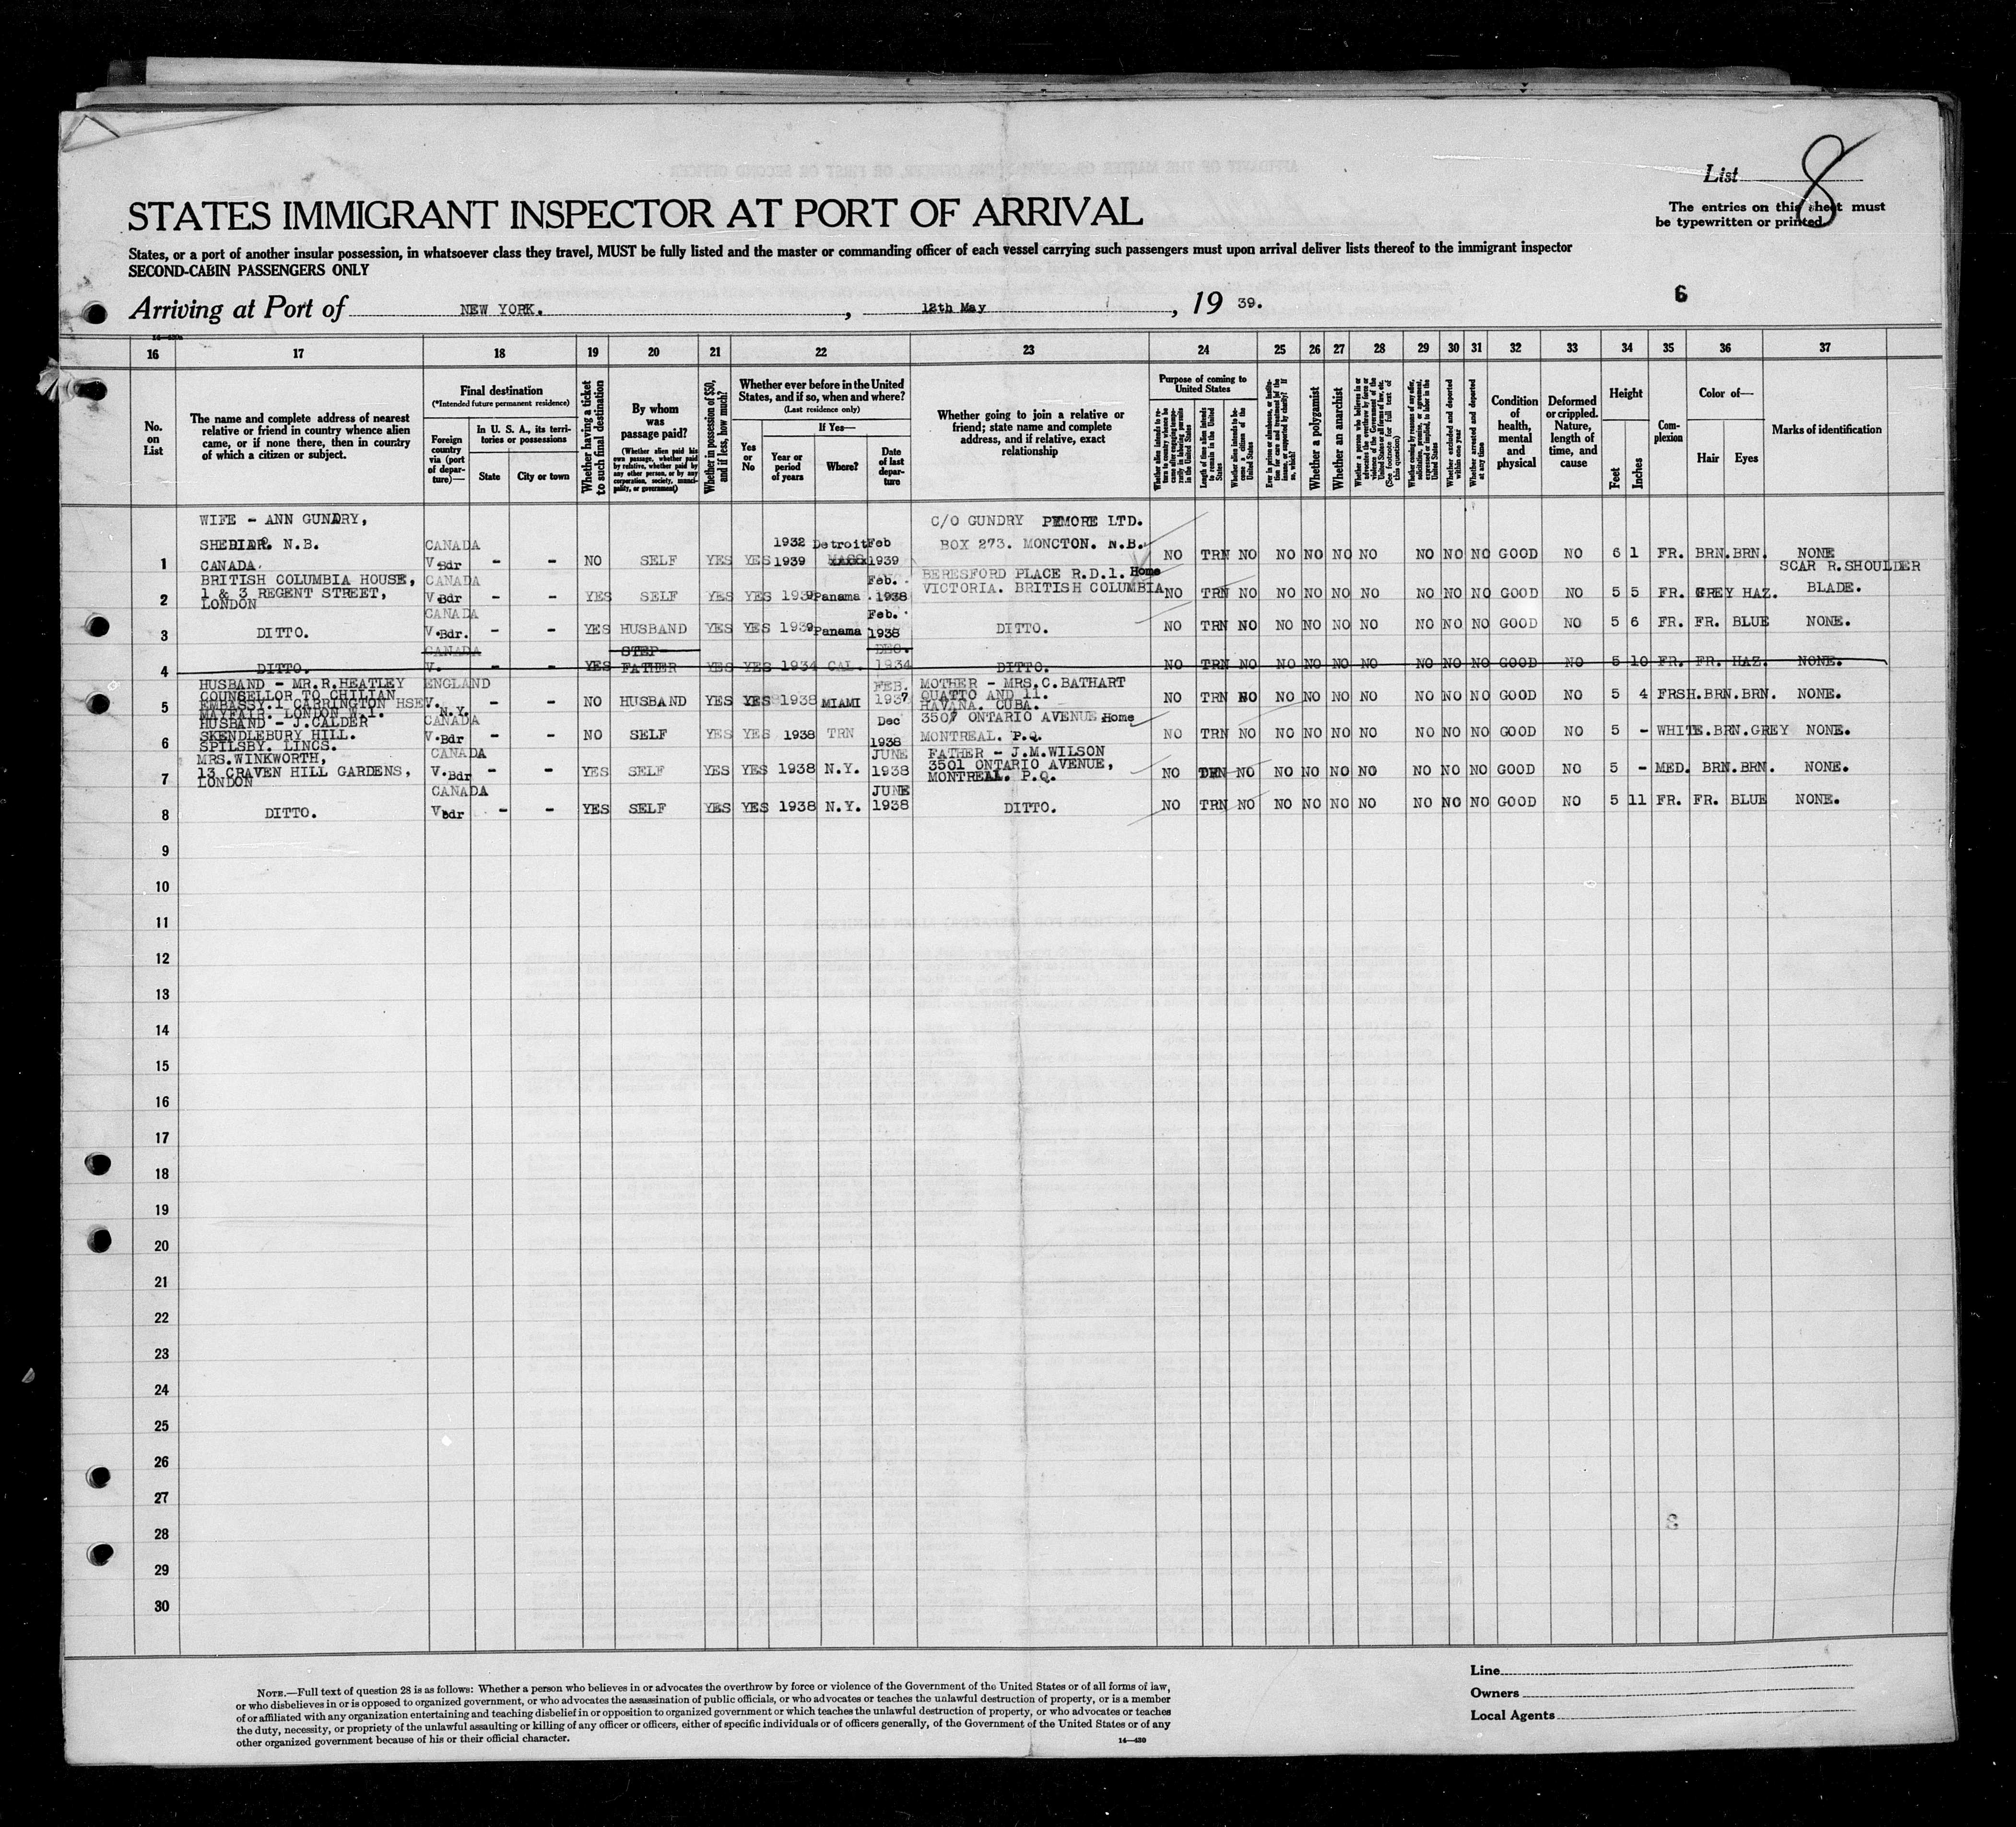 List 8
STATES IMMIGRANT INSPECTOR AT PORT OF ARRIVAL
The entries on this sheet must
be typewritten or printed.
States, or a port of another insular possession, in whatsoever class they travel, MUST be fully listed and the master or commanding officer of each vessel carrying such passengers must upon arrival deliver lists thereof to the immigrant inspector
SECOND-CABIN PASSENGERS ONLY
Arriving at Port of NEW YORK. , 12th May , 19 39.
6
16 17 18 19 20 21 22 23 24 25 26 27 28 29 30 31 32 33 34 35 36 37
No. on List
The name and complete address of nearest relative or friend in country whence alien came, or if none there, then in country of which a citizen or subject.
Final destination
(*Intended future permanent residence)
Foreign country via (port of departure)—
In U. S. A., its territories or possessions
State
City or town
Whether having a ticket to such final destination
By whom was passage paid?
(Whether alien paid his own passage, whether paid by relative, whether paid by any other person, or by any corporation, society, municipality, or government)
Whether in possession of $50, and if less, how much?
Whether ever before in the United States, and if so, when and where?
(Last residence only)
Yes or No
If Yes—
Year or period of years
Where?
Date of last departure
Whether going to join a relative or friend; state name and complete address, and if relative, exact relationship
Purpose of coming to United States
Length of time alien intends to remain in the United States
Whether alien intends to become a citizen of the United States
Whether a polygamist
Whether an anarchist
Whether excluded and deported within one year
Whether arrested and deported at any time
Condition of health, mental and physical
Deformed or crippled. Nature, length of time, and cause
Height
Feet
Inches
Complexion
Color of—
Hair
Eyes
Marks of identification
1 WIFE - ANN GUNDRY, SHEDIAR. N.B. CANADA. CANADA V. Bdr - - NO SELF YES YES 1932 1939 Detroit Feb 1939 C/O GUNDRY PYMORE LTD. BOX 273. MONCTON. N.B. NO TRN NO NO NO NO NO NO NO NO GOOD NO 6 1 FR. BRN. BRN. NONE
2 BRITISH COLUMBIA HOUSE, 1 & 3 REGENT STREET, LONDON CANADA V. Bdr - - YES SELF YES YES 1939 Panama Feb. 1938 BERESFORD PLACE R.D.1. Home VICTORIA. BRITISH COLUMBIA NO TRN NO NO NO NO NO NO NO NO GOOD NO 5 5 FR. GREY HAZ. SCAR R.SHOULDER BLADE.
3 DITTO. CANADA V. Bdr. - - YES HUSBAND YES YES 1939 Panama Feb. 1938 DITTO. NO TRN NO NO NO NO NO NO NO NO GOOD NO 5 6 FR. FR. BLUE NONE.
4 DITTO. CANADA V. - - YES STEP- FATHER YES YES 1934 CAL. DEC. 1934 DITTO. NO TRN NO NO NO NO NO NO NO NO GOOD NO 5 10 FR. FR. HAZ. NONE.
5 HUSBAND - MR.R.HEATLEY COUNSELLOR TO CHILIAN EMBASSY.1 CARRINGTON HSE MAYFAIR. LONDON W.1. ENGLAND V. N.Y. - - NO HUSBAND YES YES 1938 MIAMI FEB. 1937 MOTHER - MRS.C.BATHART QUATTO AND 11. HAVANA. CUBA. NO TRN NO NO NO NO NO NO NO NO GOOD NO 5 4 FRSH. BRN. BRN. NONE.
6 HUSBAND - J.CALDER SKENDLEBURY HILL. SPILSBY. LINCS. CANADA V. Bdr - - NO SELF YES YES 1938 TRN Dec 1938 3507 ONTARIO AVENUE Home MONTREAL. P.Q. NO TRN NO NO NO NO NO NO NO NO GOOD NO 5 - WHITE. BRN. GREY NONE.
7 MRS.WINKWORTH, 13 CRAVEN HILL GARDENS, LONDON CANADA V. Bdr - - YES SELF YES YES 1938 N.Y. JUNE 1938 FATHER - J.M.WILSON 3501 ONTARIO AVENUE, MONTREAL. P.Q. NO TRN NO NO NO NO NO NO NO NO GOOD NO 5 - MED. BRN. BRN. NONE.
8 DITTO. CANADA V Bdr - - YES SELF YES YES 1938 N.Y. JUNE 1938 DITTO. NO TRN NO NO NO NO NO NO NO NO GOOD NO 5 11 FR. FR. BLUE NONE.
9
10
11
12
13
14
15
16
17
18
19
20
21
22
23
24
25
26
27
28
29
30
NOTE.—Full text of question 28 is as follows: Whether a person who believes in or advocates the overthrow by force or violence of the Government of the United States or of all forms of law,
or who disbelieves in or is opposed to organized government, or who advocates the assassination of public officials, or who advocates or teaches the unlawful destruction of property, or is a member
of or affiliated with any organization entertaining and teaching disbelief in or opposition to organized government or which teaches the unlawful destruction of property, or who advocates or teaches
the duty, necessity, or propriety of the unlawful assaulting or killing of any officer or officers, either of specific individuals or of officers generally, of the Government of the United States or of any
other organized government because of his or their official character.
14—430
Line
Owners
Local Agents